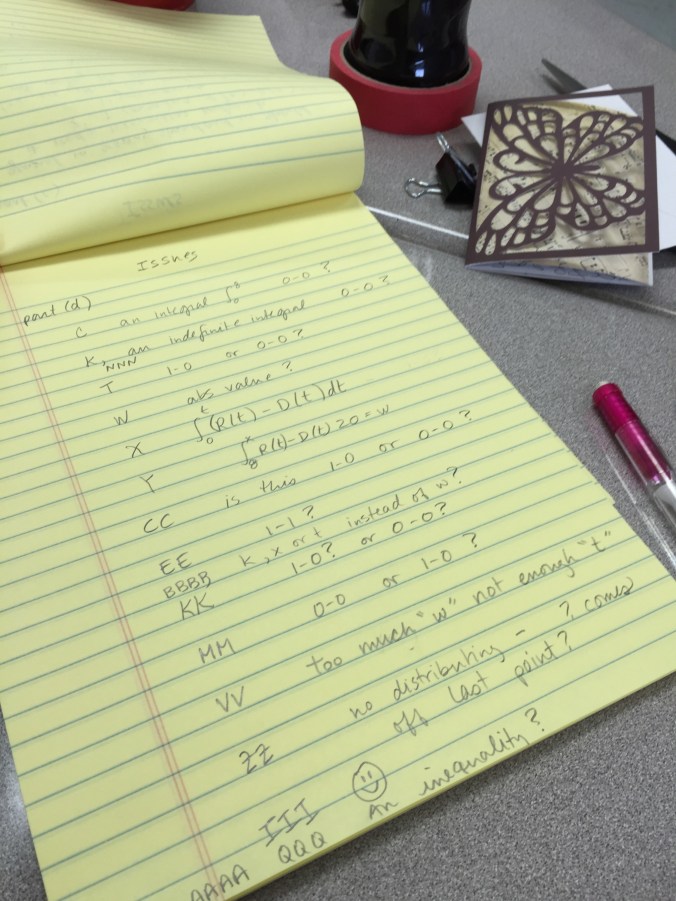 Issues
part (d)
C an integral ∫₀⁸ 0-0?
K, NNN an indefinite integral 0-0?
T 1-0 or 0-0?
W abs value?
X ∫₀ᵗ (R(t) - D(t)) dt
Y ∫₈ˣ R(t)-D(t) 20 = w
CC is this 1-0 or 0-0?
EE 1-1?
BBBB K, x or t instead of w?
KK 1-0? or 0-0?
MM 0-0 or 1-0?
VV too much "w" not enough "t"
ZZ no distributing - ? comes
off last point?
III ☺
AAAA QQQ An inequality?